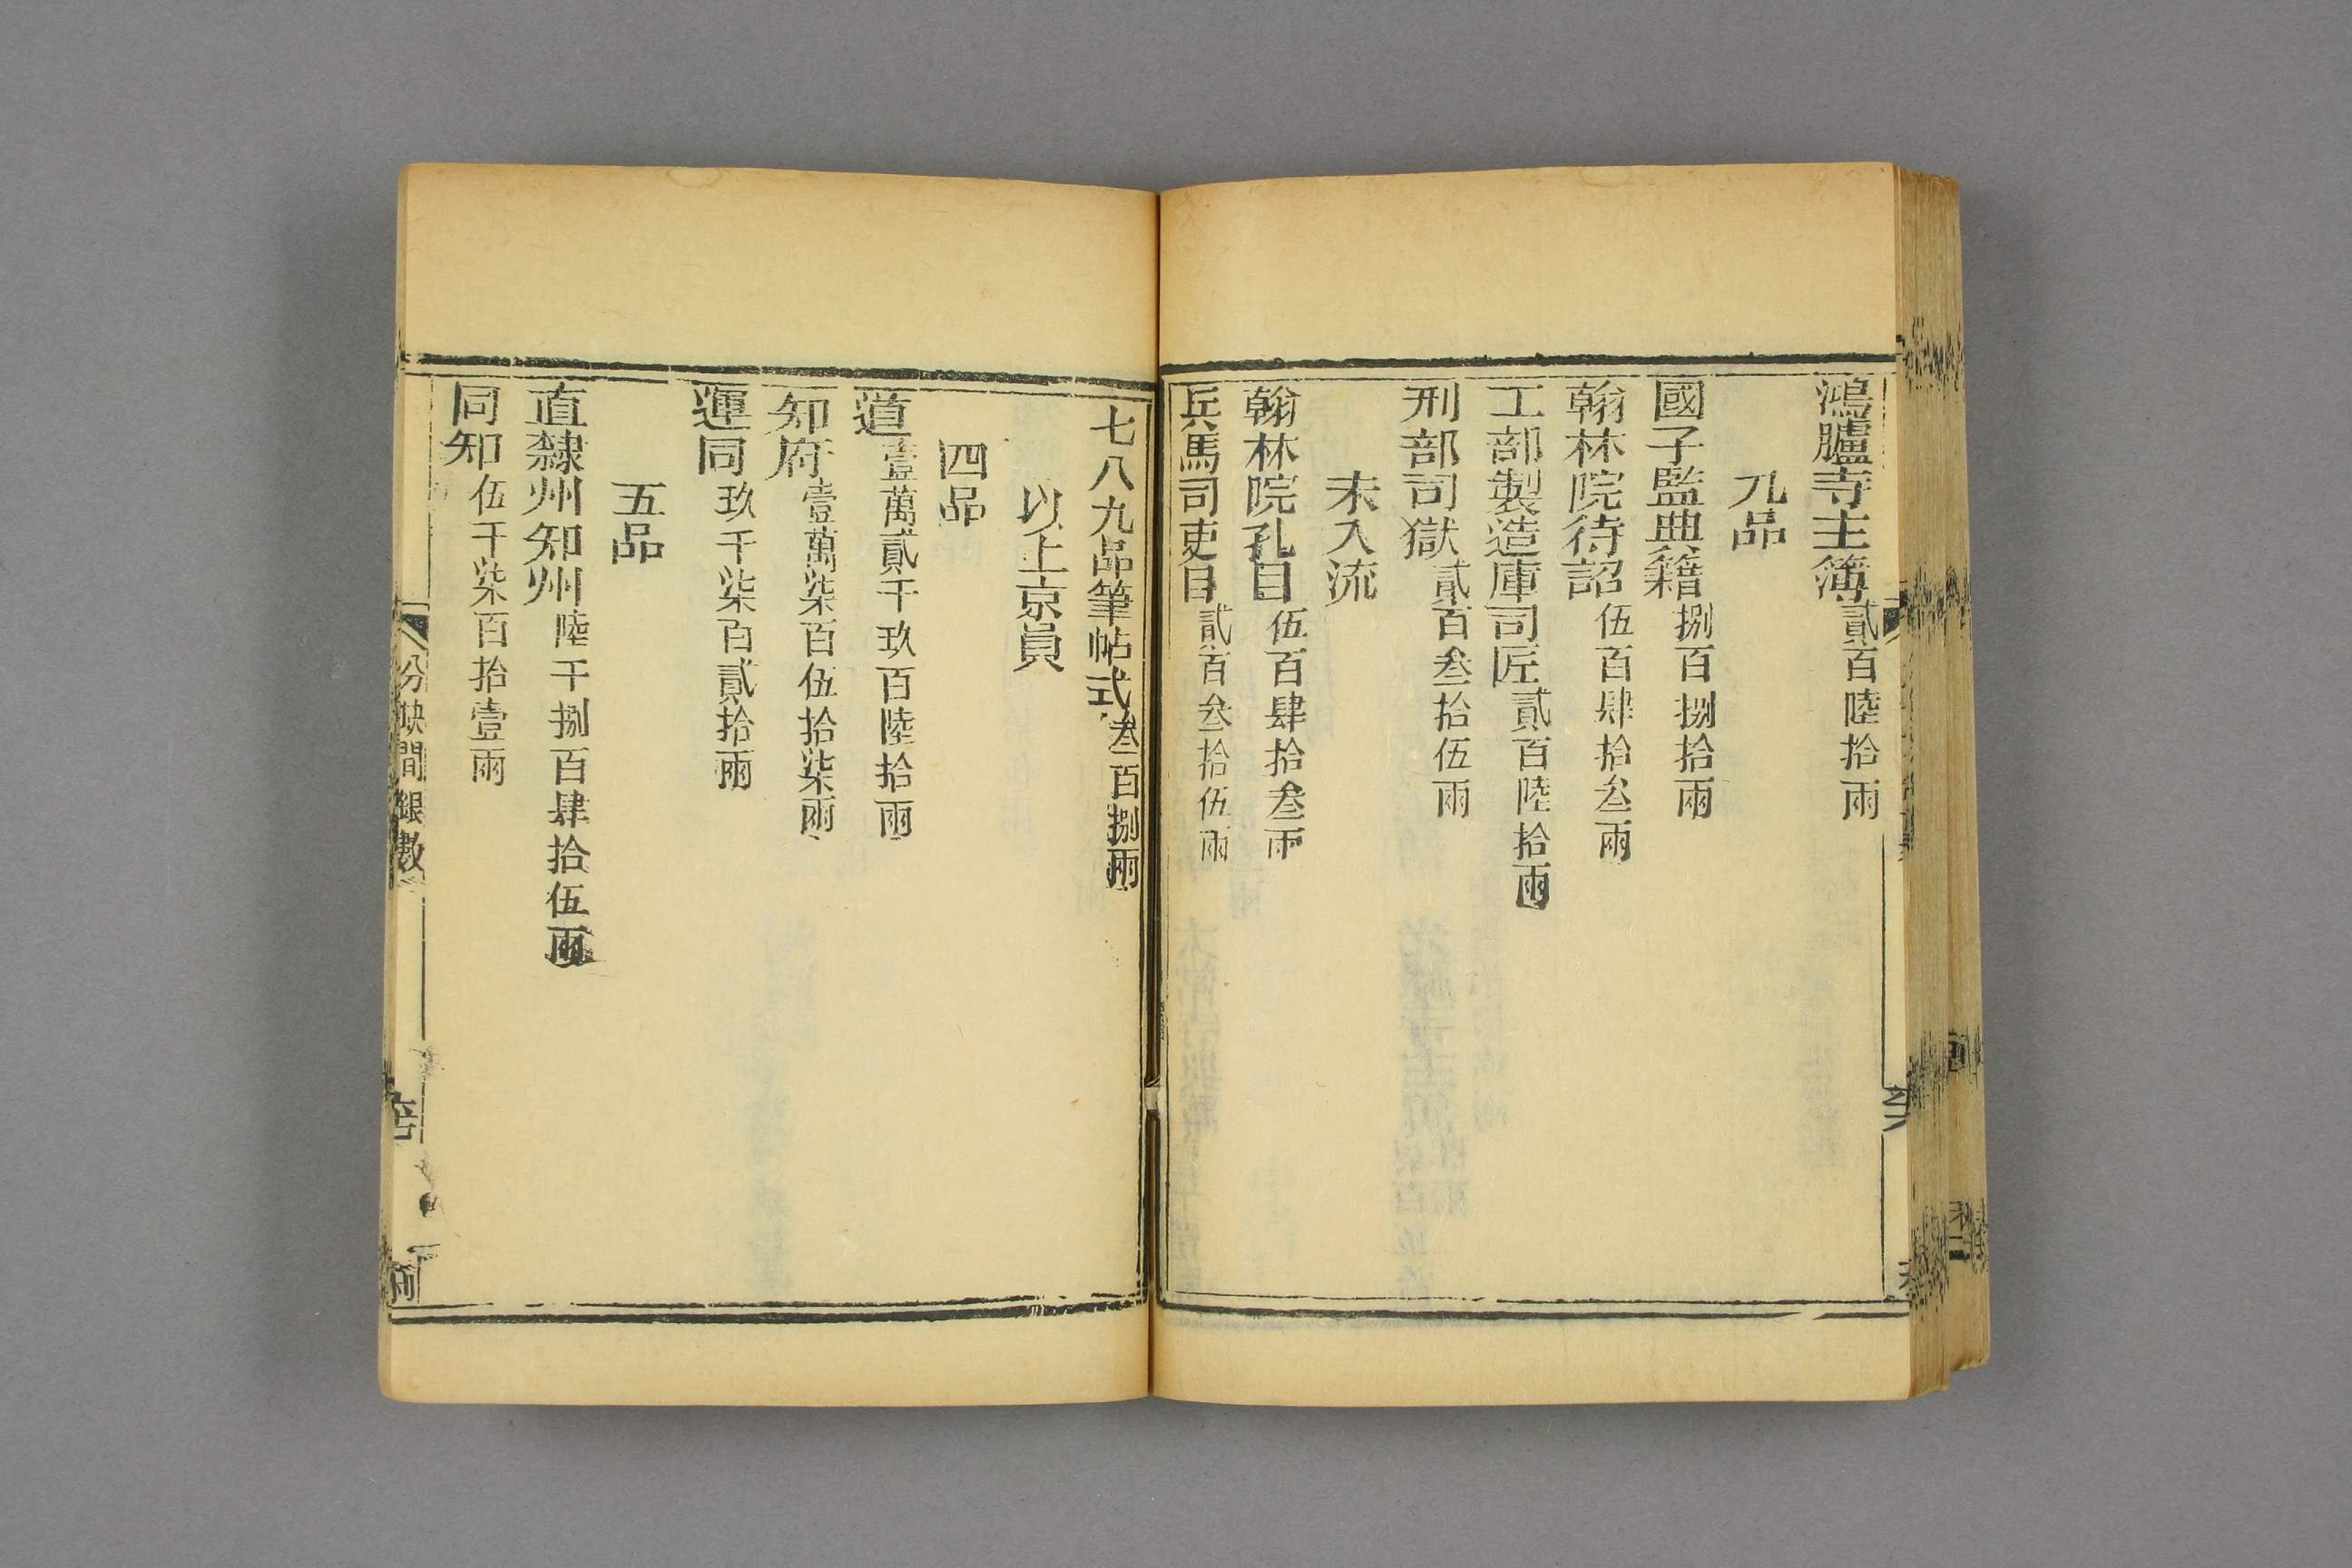 鴻臚寺主簿貳百陸拾兩
九品
國子監典籍捌百捌拾兩
翰林院待詔伍百肆拾叁兩
工部製造庫司匠貳百陸拾兩
刑部司獄貳百叁拾伍兩
未入流
翰林院孔目伍百肆拾叁兩
兵馬司吏目貳百叁拾伍兩
七八九品筆帖式叁百捌兩
以上京員
四品
道壹萬貳千玖百陸拾兩
知府壹萬柒百伍拾柒兩
運同玖千柒百貳拾兩
五品
直隸州知州陸千捌百肆拾伍兩
同知伍千柒百拾壹兩
分缺間銀數